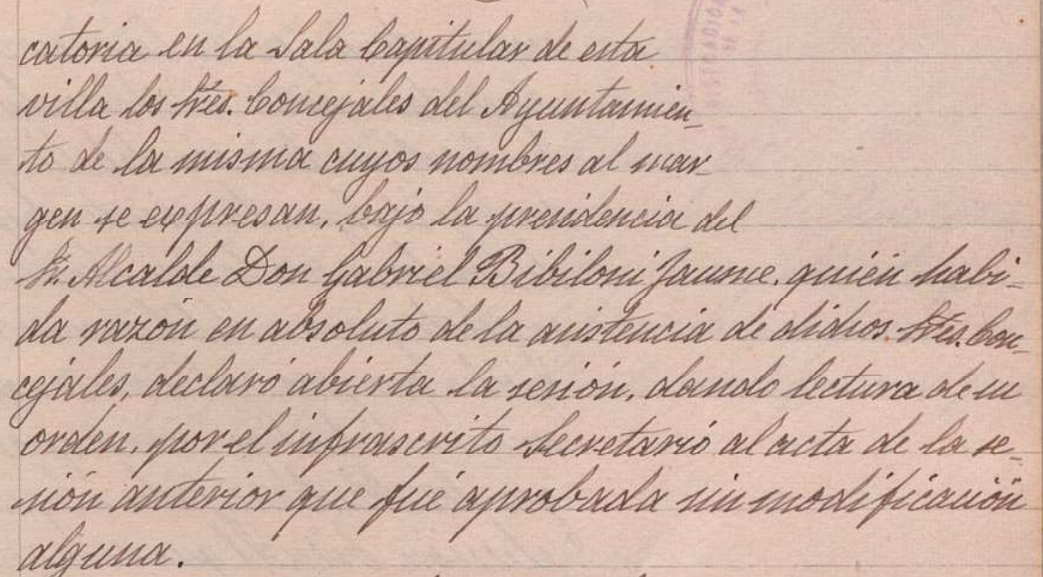 catoria en la Sala Capitular de esta
villa los Sres. Concejales del Ayuntamien_
to de la misma cuyos nombres al mar_
gen se expresan, bajo la presidencia del
Sr. Alcalde Don Gabriel Bibiloni Jaume, quién habi=
da razón en absoluto de la asistencia de dichos Sres. Con_
cejales, declaró abierta la sesión, dando lectura de su
orden, por el infrascrito Secretario al acta de la se_
sión anterior que fué aprobada sin modificación
alguna.